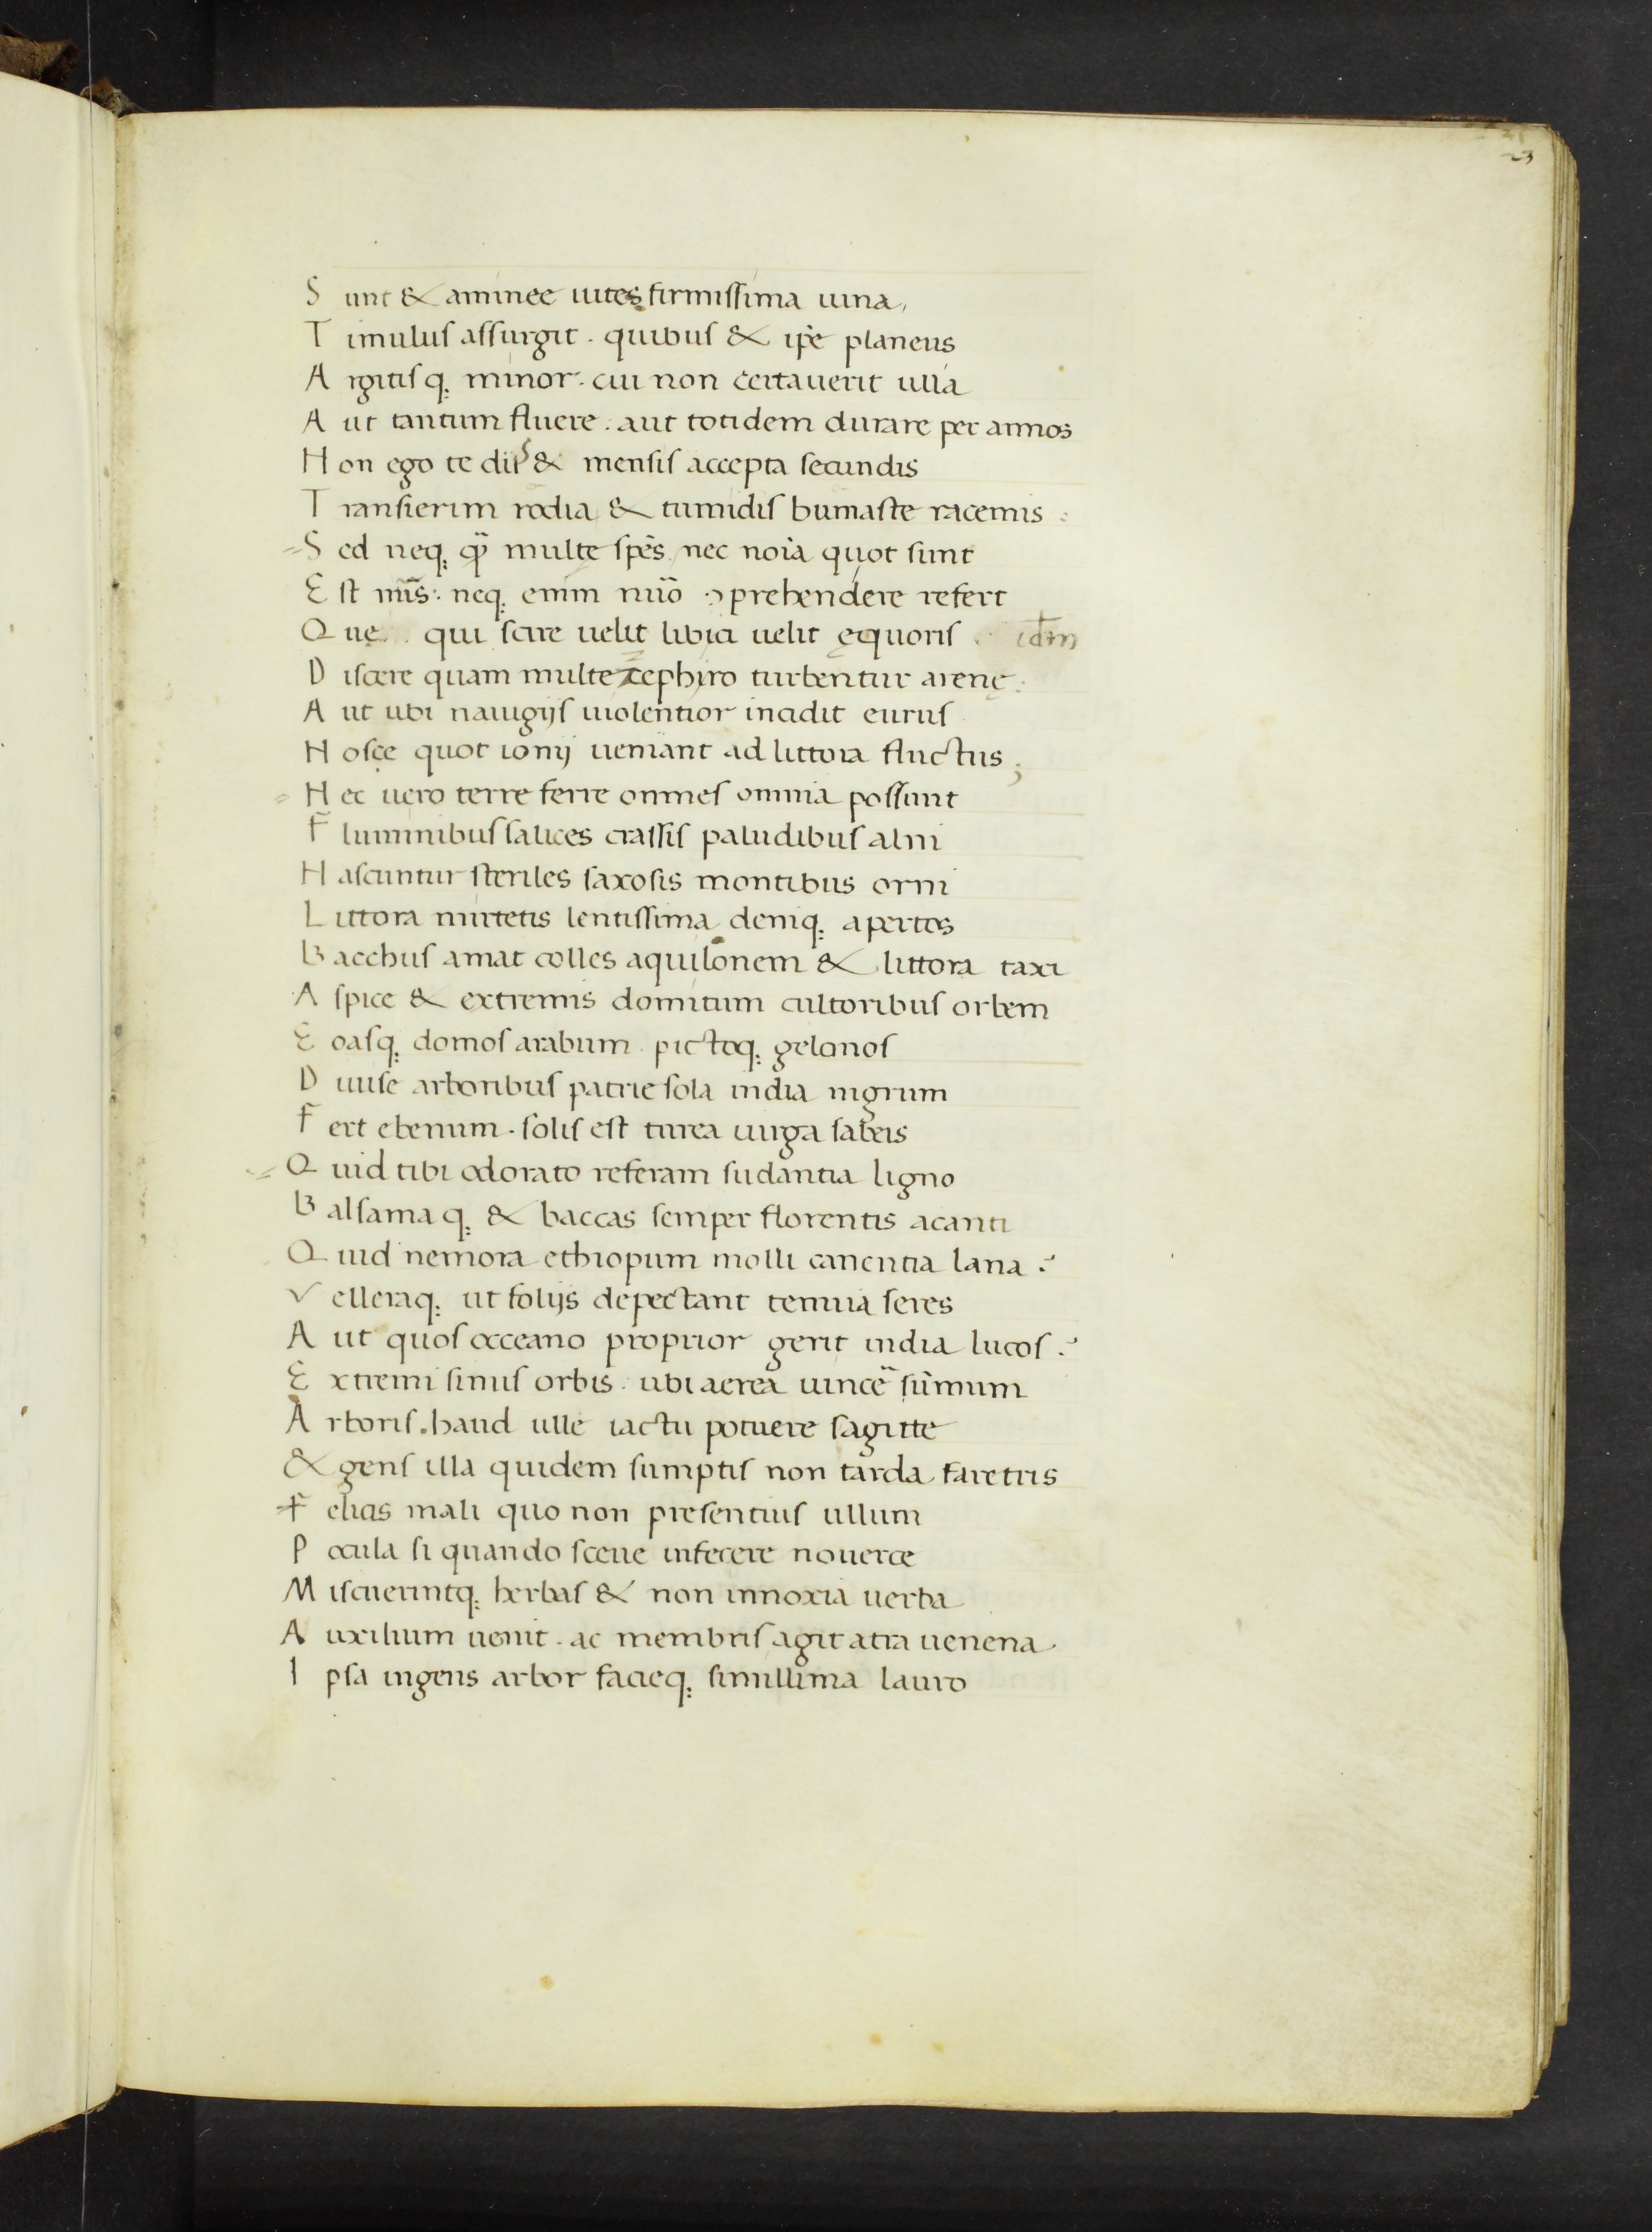 23
S unt & aminee uites firmissima uina,
T imulus assurgit . quibus & ip̃e planeus
A rgitisq; minor . cui non certauerit ulla
A ut tantum fluere . aut totidem durare per annos
N on ego te diis & mensis accepta secundis
T ransierim rodia & tumidis bumaste racemis :
S ed neq; q̃ multe sp̃es nec noĩa quot sunt
E st nũs : neq; enim nũo ꝯprehendere refert
Q uę qui scire uelit libici uelit ęquoris idm̃
D iscere quam multe zephiro turbentur arenę :
A ut ubi nauigijs uiolentior incidit eurus
N osce quot ionij ueniant ad littora fluctus ;
N ec uero terre ferre omnes omnia possunt
F luminibus salices crassis paludibus alni
N ascuntur steriles saxosis montibus orni
L ittora mirtetis lentissima deniq; apertos
B acchus amat colles aquilonem & littora taxi
A spice & extremis domitum cultoribus orbem
E oasq; domos arabum . pictoq; gelonos
D iuise arboribus patrie sola india nigrum
F ert ebenum . solis est turea uirga sabeis
Q uid tibi odorato referam sudantia ligno
B alsamaq; & baccas semper florentis acanti
Q uid nemora ethiopum molli canentia lana ?
V elleraq; ut folijs depectant tenuia seres
A ut quos occeano proprior gerit india lucos ?
E xtremi sinus orbis . ubi aerea uince᷑ sũmum
A rboris . haud ulle iactu potuere sagitte
& gens illa quidem sumptis non tarda faretris
F elicis mali quo non presentius ullum
P ocula si quando sceue infecere nouerce
M iscuerintq; herbas & non innoxia uerba
A uxilium uenit . ac membris agit atra uenena .
I psa ingens arbor facieq; simillima lauro